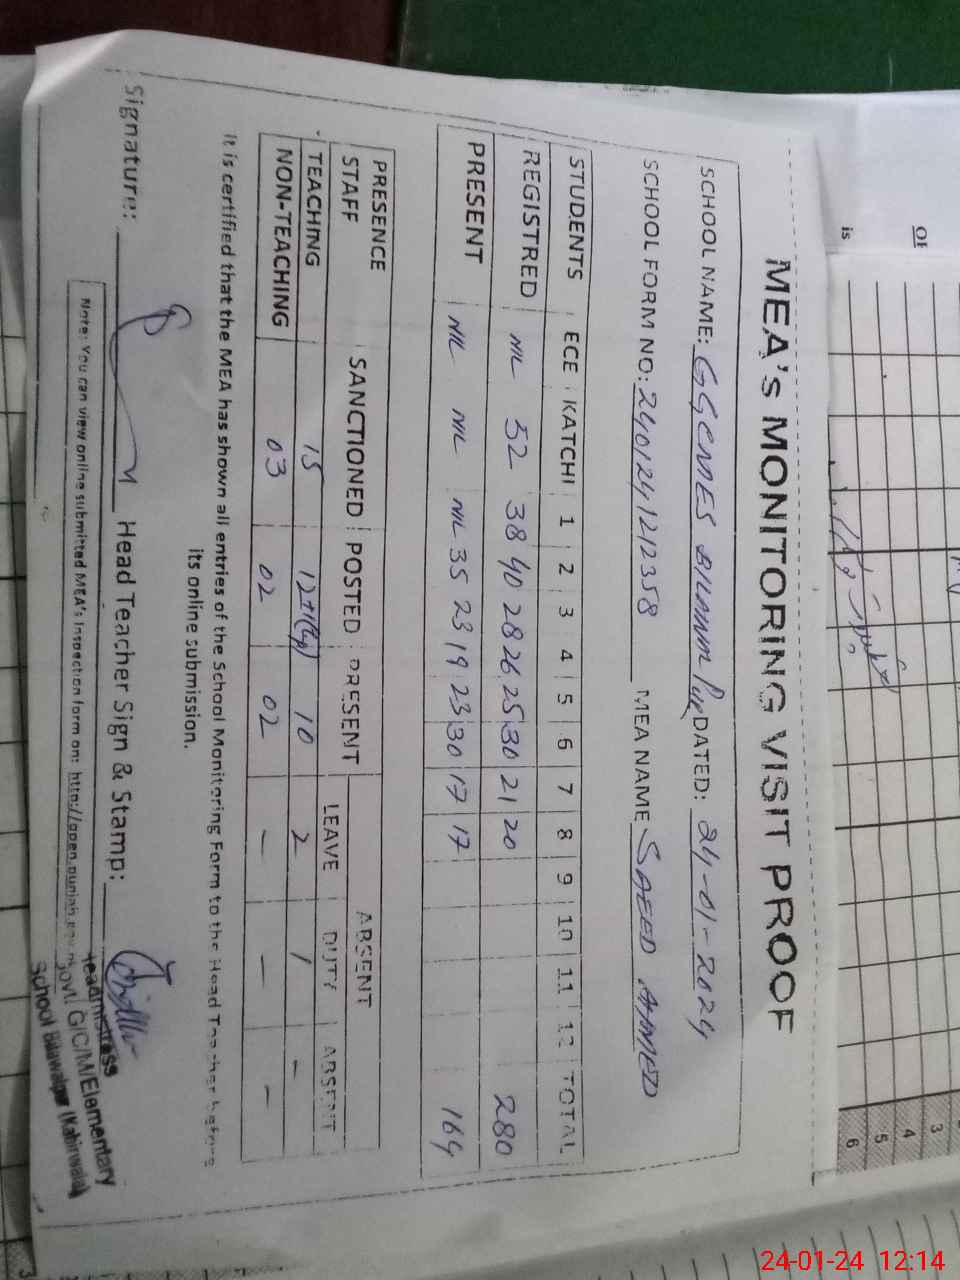 MEA's MONITORING VISIT PROOF
SCHOOL NAME: DATED: 24-01-2024
SCHOOL FORM NO: 2401241212358 MEA NAME SAEED AHMED
STUDENTS ECE KATCHI 1 2 3 4 5 6 7 8 9 10 11 12 TOTAL
REGISTRED NIL 52 38 40 28 26 25 30 21 20 280
PRESENT NIL NIL NIL 35 23 19 23 30 17 17 164
PRESENCE ABSENT
STAFF SANCTIONED POSTED PRESENT LEAVE DUTY ABSENT
TEACHING 15 12+1 10 2 1 -
NON-TEACHING 03 02 02 - - -
It is certified that the MEA has shown all entries of the School Monitoring Form to the Head Teacher before
its online submission.
Signature: Head Teacher Sign & Stamp:
Note: You can view online submitted MEA's Inspection form on: http://open.punjab.gov.pk
Headmistress
Govt. G/C/M/Elementary
School Bilawalpur (Kabirwala)
OF
is
3
4
5
6
24-01-24 12:14